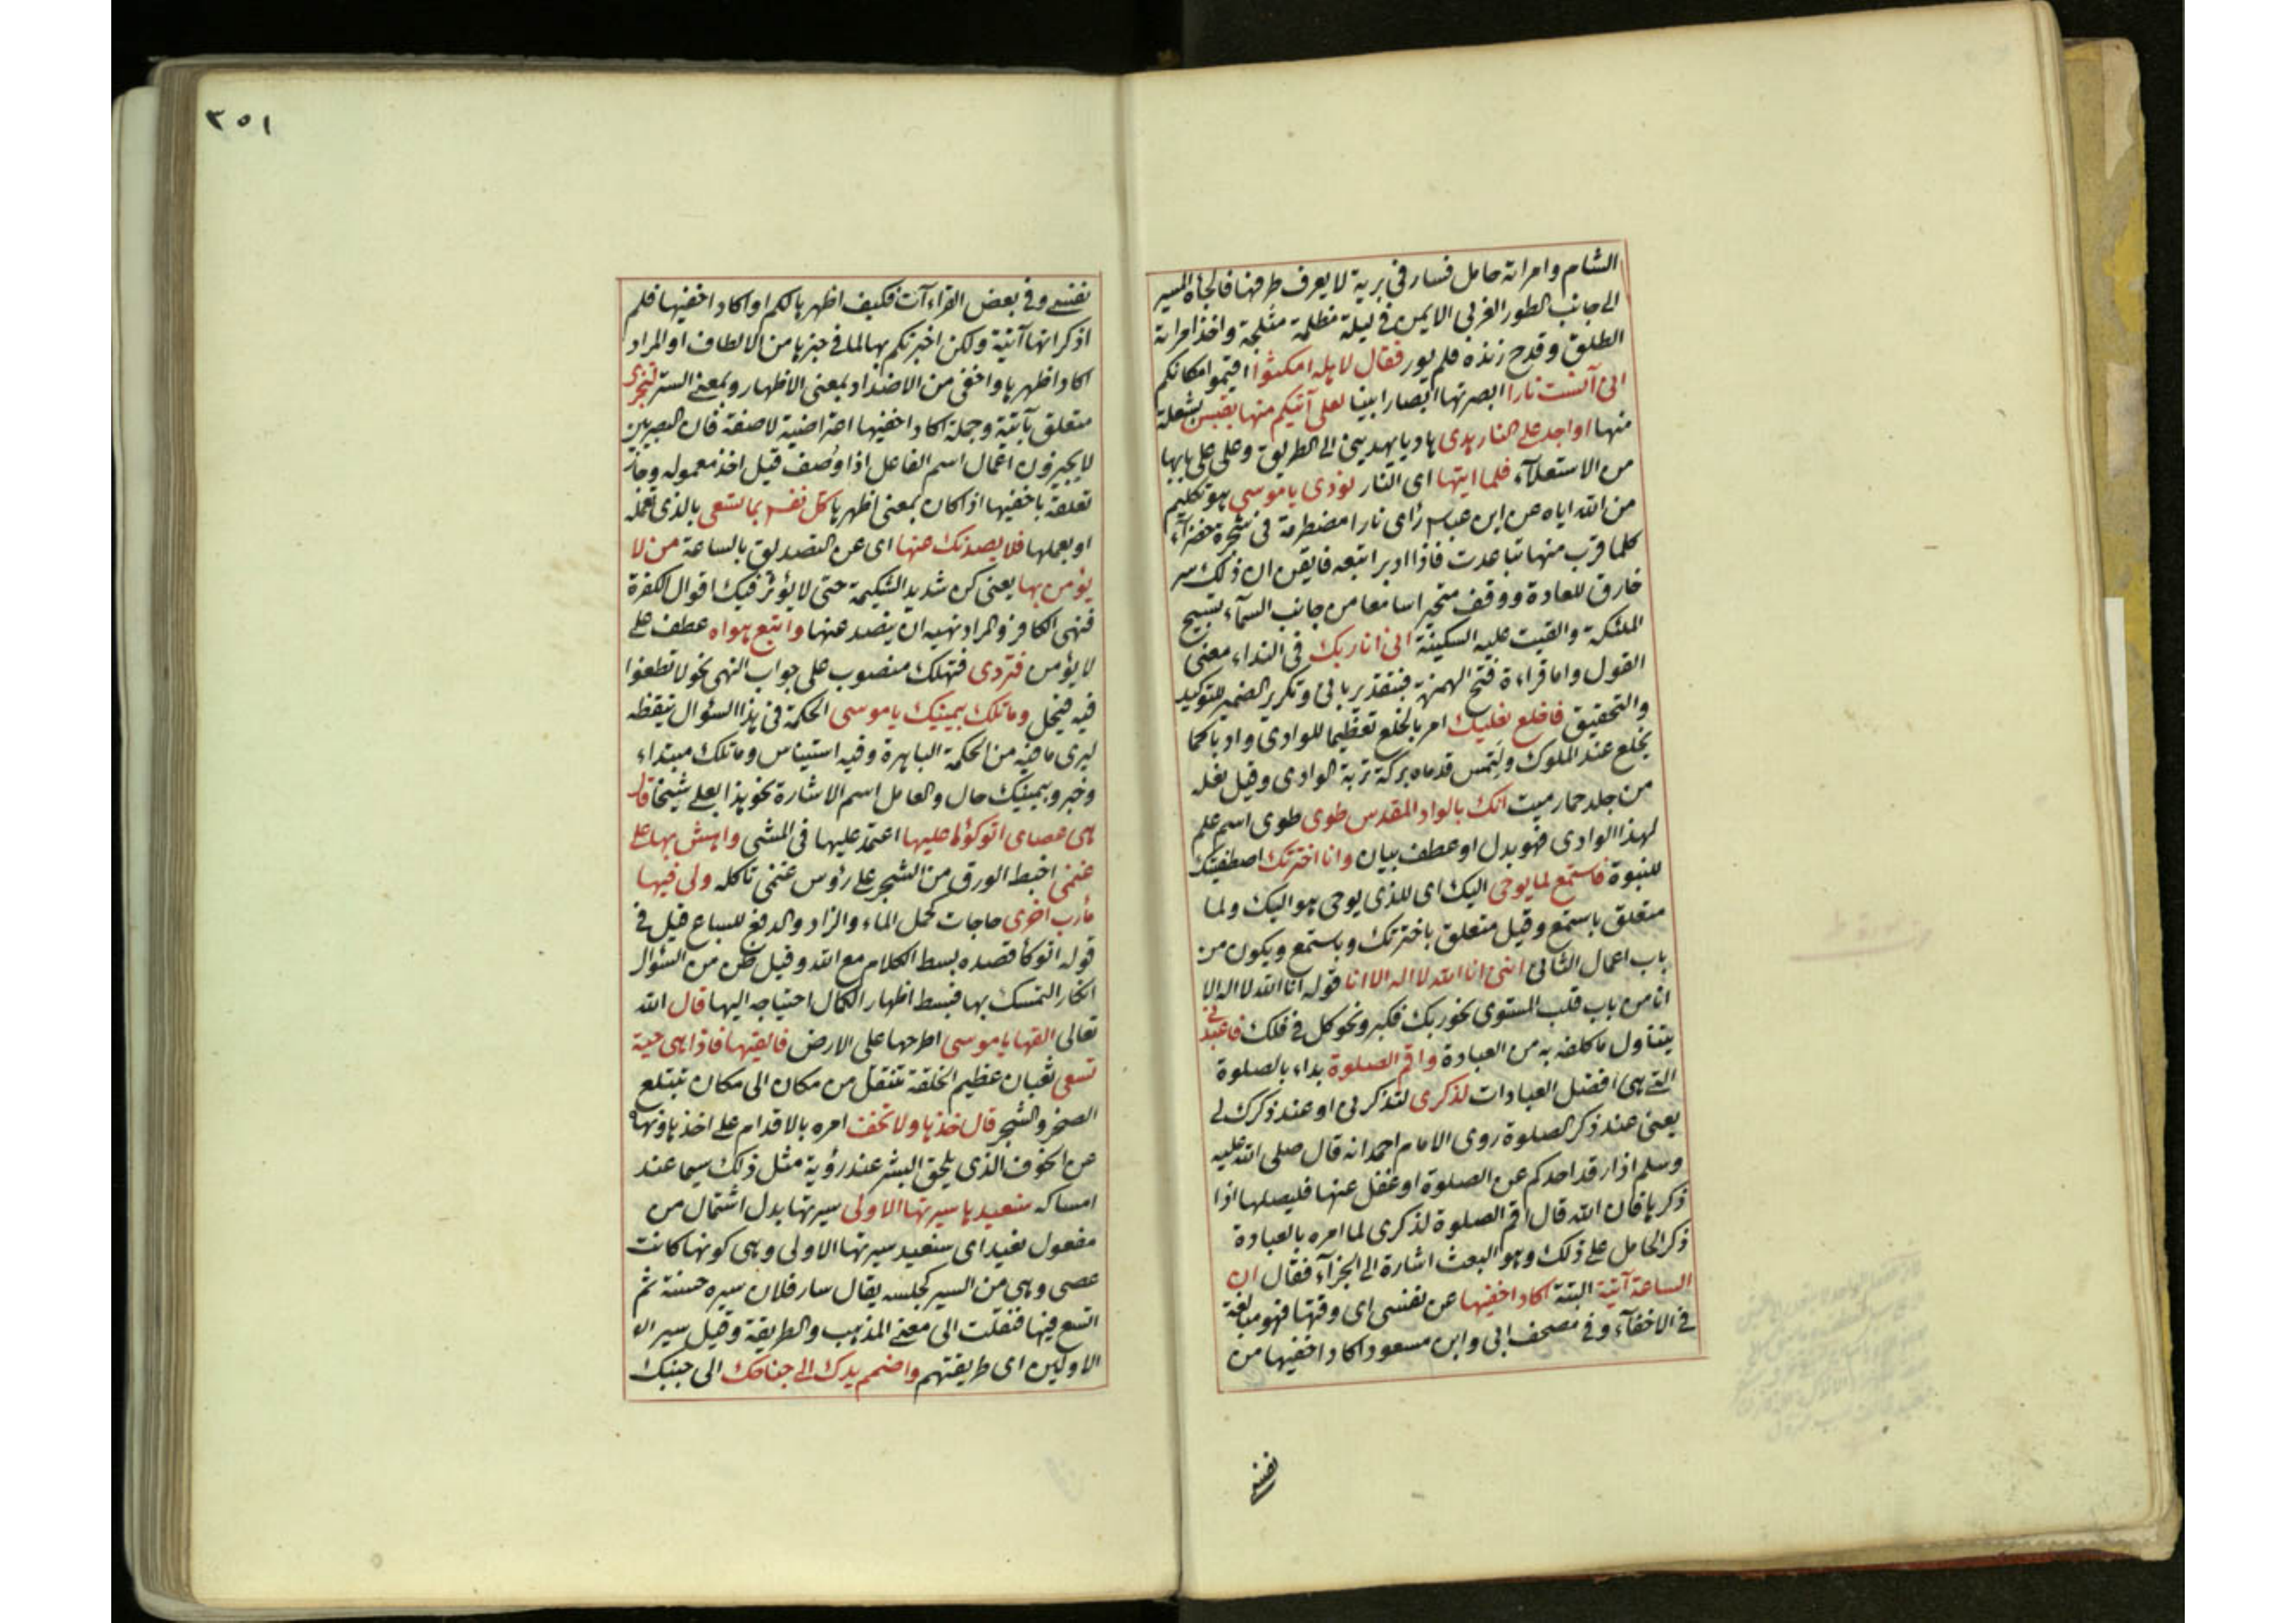 الشام وامراته حامل فسار في برية لا يعرف طرقها فالجأه المسير
الى جانب الطور الغربي الايمن في ليلة مظلمة مثلجة واخذ امراته
الطلق وقدح زنده فلم يور فقال لاهله امكثوا اقيموا مكانكم
اني آنست نارا ابصرتها ابصارا بينا لعلي آتيكم منها بقبس بشعلة
منها او اجد على النار هدى هاديا يهديني الى الطريق وعلى على بابها
من الاستعلاء فلما اتيها اى النار نودى يا موسى هو تكليم
من الله اياه عن ابن عباس راى نارا مضطرمة فى شجرة خضراء
كلما قرب منها تباعدت فاذا ادبر اتبعه فايقن ان ذلك سر
خارق للعادة ووقف متحيرا سامعا من جانب السمآء تسبيح
الملئكة والقيت عليه السكينة انى انا ربك فى النداء معنى
القول واما قراءة فتح الهمزة فبتقدير بانى وتكرير الضمير للتوكيد
والتحقيق فاخلع نعليك امر بالخلع تعظيما للوادى وادبا كما
يخلع عند الملوك ولتمس قدماه بركة تربة الوادى وقيل نعله
من جلد حمار ميت انك بالواد المقدس طوى طوى اسم علم
لهذا الوادى فهو بدل او عطف بيان وانا اخترتك اصطفيتك
للنبوة فاستمع لما يوحى اليك اى للذى يوحى هو اليك ولما
متعلق باستمع وقيل متعلق باخترتك وباستمع ويكون من
باب اعمال الثانى اننى انا الله لا اله الا انا قوله انا الله لا اله الا
انا من باب قلب المستوى نحو ربك فكبر ونحو كل فى فلك فاعبدنى
يتناول ما كلفه به من العبادة واقم الصلوة بداء بالصلوة
التى هى افضل العبادات لذكرى لتذكرنى او عند ذكرك لى
يعنى عند ذكر الصلوة روى الامام احمد انه قال صلى الله عليه
وسلم اذا رقد احدكم عن الصلوة او غفل عنها فليصلها اذا
ذكرها فان الله قال اقم الصلوة لذكرى لما امره بالعبادة
ذكر الحامل على ذلك وهو البعث اشارة الى الجزآء فقال ان
الساعة آتية البتة اكاد اخفيها عن نفسى اى وقتها فهو مبالغة
فى الاخفآء وفى مصحف ابى وابن مسعود اكاد اخفيها من
نفسى
٣٥١
نفسى وفى بعض القراءآت فكيف اظهرها لكم او اكاد اخفيها فلم
اذكر انها آتية ولكن اخبرتكم بها لما فى خبرها من الالطاف او المراد
اكاد اظهرها واخفى من الاضداد بمعنى الاظهار وبمعنى الستر لتجزى
متعلق بآتية وجملة اكاد اخفيها اعتراضية لا صفة فان البصريين
لا يجيزون اعمال اسم الفاعل اذا وصف قبل اخذ معموله وجاز
تعلقه باخفيها اذا كان بمعنى اظهرها كل نفس بما تسعى بالذى تعمله
او بعملها فلا يصدنك عنها اى عن التصديق بالساعة من لا
يؤمن بها يعنى كن شديد الشكيمة حتى لا يؤثر فيك اقوال الكفرة
فنهى الكافر والمراد نهيه ان ينصد عنها واتبع هواه عطف على
لا يؤمن فتردى فتهلك منصوب على جواب النهى نحو لا تطغوا
فيه فيحل وما تلك بيمينك يا موسى الحكمة فى هذا السؤال تيقظه
ليرى ما فيه من الحكمة الباهرة وفيه استيناس وما تلك مبتداء
وخبر وبيمينك حال والعامل اسم الاشارة نحو هذا بعلى شيخا قال
هى عصاى اتوكؤا عليها اعتمد عليها فى المشى واهش بها على
غنمى اخبط الورق من الشجر على رؤس غنمى تاكله ولى فيها
مأرب اخرى حاجات كحمل الماء والزاد والدفع للسباع قيل فى
قوله اتوكأ قصده بسط الكلام مع الله وقيل ظن من السئوال
انكار التمسك بها فبسط اظهار الكمال احتياجه اليها قال الله
تعالى القها يا موسى اطرحها على الارض فالقيها فاذا هى حية
تسعى ثعبان عظيم الخلقة تنتقل من مكان الى مكان تبتلع
الصخر والشجر قال خذها ولا تخف امره بالاقدام على اخذها ونهاه
عن الخوف الذى يلحق البشر عند رؤية مثل ذلك سيما عند
امساكه سنعيدها سيرتها الاولى سيرتها بدل اشتمال من
مفعول نعيد اى سنعيد سيرتها الاولى وهى كونها كانت
عصى وهى من السير كجلسه يقال سار فلان سيره حسنة ثم
اتسع فيها فنقلت الى معنى المذهب والطريقة وقيل سير
الاولين اى طريقتهم واضمم يدك الى جناحك الى جنبك